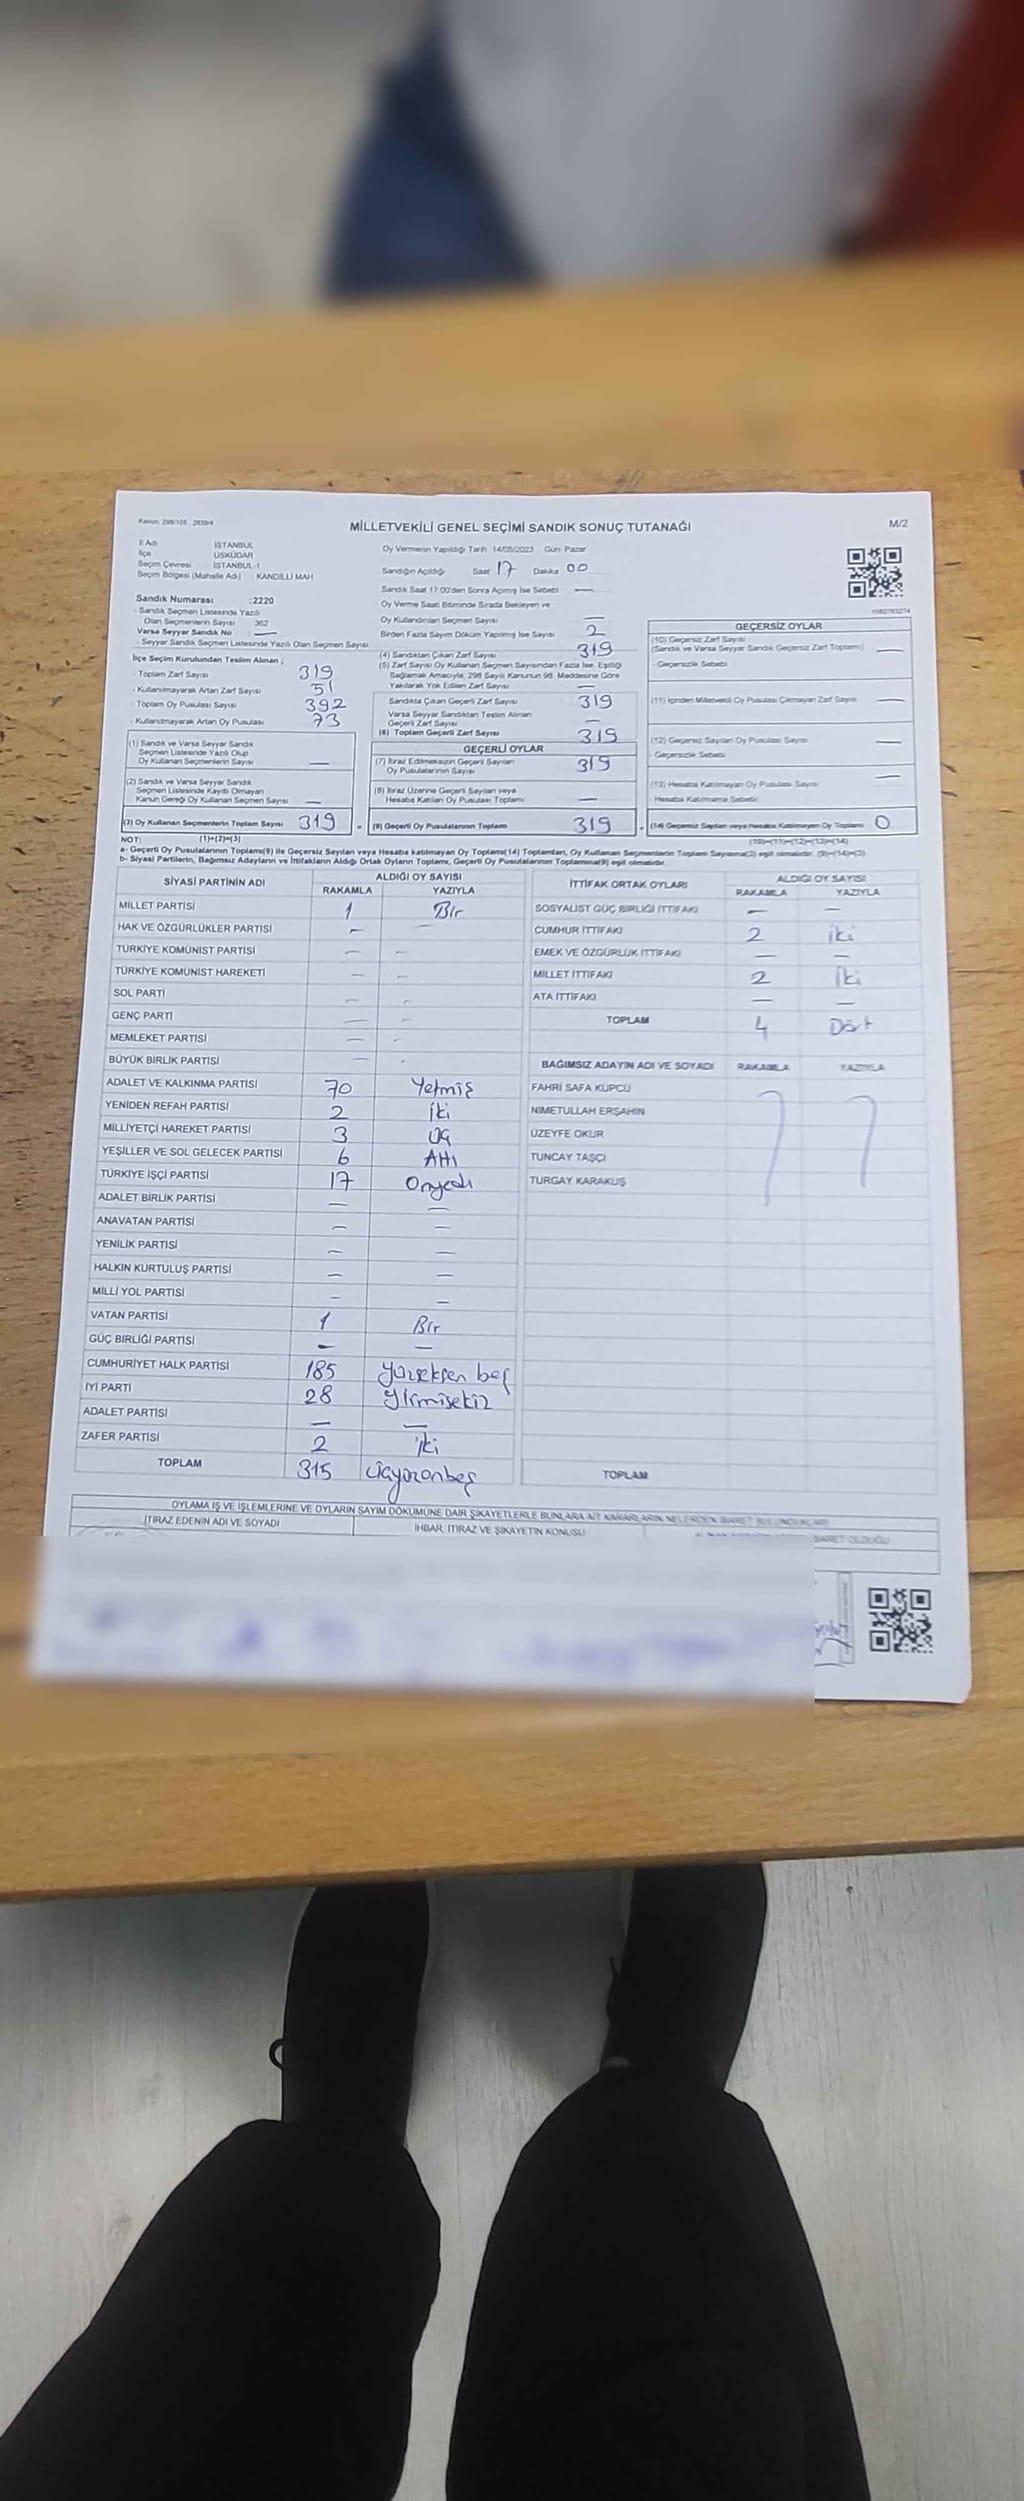 Kanun: 298/105 , 2839/4
MİLLETVEKİLİ GENEL SEÇİMİ SANDIK SONUÇ TUTANAĞI
M/2
İl Adı İSTANBUL
İlçe ÜSKÜDAR
Seçim Çevresi İSTANBUL-1
Seçim Bölgesi (Mahalle Adı) KANDİLLİ MAH
Sandık Numarası :2220
- Sandık Seçmen Listesinde Yazılı
Olan Seçmenlerin Sayısı 362
Varsa Seyyar Sandık No : —
- Seyyar Sandık Seçmen Listesinde Yazılı Olan Seçmen Sayısı
İlçe Seçim Kurulundan Teslim Alınan ;
- Toplam Zarf Sayısı 319
- Kullanılmayarak Artan Zarf Sayısı 51
- Toplam Oy Pusulası Sayısı 392
- Kullanılmayarak Artan Oy Pusulası 73
(1) Sandık ve Varsa Seyyar Sandık
Seçmen Listesinde Yazılı Olup
Oy Kullanan Seçmenlerin Sayısı —
(2) Sandık ve Varsa Seyyar Sandık
Seçmen Listesinde Kaydı Olmayan
Kanun Gereği Oy Kullanan Seçmen Sayısı —
(3) Oy Kullanan Seçmenlerin Toplam Sayısı 319
(1)+(2)=(3)
Oy Vermenin Yapıldığı Tarih 14/05/2023 Gün Pazar
Sandığın Açıldığı Saat 17 Dakika 00
Sandık Saat 17:00'den Sonra Açılmış İse Sebebi —
Oy Verme Saati Bitiminde Sırada Bekleyen ve
Oy Kullandırılan Seçmen Sayısı —
Birden Fazla Sayım Döküm Yapılmış İse Sayısı 2
(4) Sandıktan Çıkan Zarf Sayısı 319
(5) Zarf Sayısı Oy Kullanan Seçmen Sayısından Fazla İse, Eşitliği
Sağlamak Amacıyla, 298 Sayılı Kanunun 98. Maddesine Göre
Yakılarak Yok Edilen Zarf Sayısı —
Sandıkta Çıkan Geçerli Zarf Sayısı 319
Varsa Seyyar Sandıktan Teslim Alınan
Geçerli Zarf Sayısı —
(6) Toplam Geçerli Zarf Sayısı 319
GEÇERLİ OYLAR
(7) İtiraz Edilmeksizin Geçerli Sayılan
Oy Pusulalarının Sayısı 319
(8) İtiraz Üzerine Geçerli Sayılan veya
Hesaba Katılan Oy Pusulası Toplamı —
(9) Geçerli Oy Pusulalarının Toplamı 319
GEÇERSİZ OYLAR
(10) Geçersiz Zarf Sayısı
(Sandık ve Varsa Seyyar Sandık Geçersiz Zarf Toplamı) —
- Geçersizlik Sebebi
(11) İçinden Milletvekili Oy Pusulası Çıkmayan Zarf Sayısı —
(12) Geçersiz Sayılan Oy Pusulası Sayısı —
- Geçersizlik Sebebi
(13) Hesaba Katılmayan Oy Pusulası Sayısı —
Hesaba Katılmama Sebebi
(14) Geçersiz Sayılan veya Hesaba Katılmayan Oy Toplamı 0
(10)+(11)+(12)+(13)=(14)
NOT:
a- Geçerli Oy Pusulalarının Toplamı(9) ile Geçersiz Sayılan veya Hesaba katılmayan Oy Toplamı(14) Toplamları, Oy Kullanan Seçmenlerin Toplam Sayısına(3) eşit olmalıdır. (9)+(14)=(3)
b- Siyasi Partilerin, Bağımsız Adayların ve İttifakların Aldığı Ortak Oyların Toplamı, Geçerli Oy Pusulalarının Toplamına(9) eşit olmalıdır.
SİYASİ PARTİNİN ADI ALDIĞI OY SAYISI
RAKAMLA YAZIYLA
MİLLET PARTİSİ 1 Bir
HAK VE ÖZGÜRLÜKLER PARTİSİ — —
TÜRKİYE KOMÜNİST PARTİSİ — —
TÜRKİYE KOMÜNİST HAREKETİ — —
SOL PARTİ — —
GENÇ PARTİ — —
MEMLEKET PARTİSİ — —
BÜYÜK BİRLİK PARTİSİ — -
ADALET VE KALKINMA PARTİSİ 70 Yetmiş
YENİDEN REFAH PARTİSİ 2 İki
MİLLİYETÇİ HAREKET PARTİSİ 3 Üç
YEŞİLLER VE SOL GELECEK PARTİSİ 6 Altı
TÜRKİYE İŞÇİ PARTİSİ 17 Onyedi
ADALET BİRLİK PARTİSİ — —
ANAVATAN PARTİSİ — —
YENİLİK PARTİSİ — —
HALKIN KURTULUŞ PARTİSİ — —
MİLLİ YOL PARTİSİ — —
VATAN PARTİSİ 1 Bir
GÜÇ BİRLİĞİ PARTİSİ — —
CUMHURİYET HALK PARTİSİ 185 Yüzseksen beş
İYİ PARTİ 28 Yirmisekiz
ADALET PARTİSİ — —
ZAFER PARTİSİ 2 İki
TOPLAM 315 Üçyüzonbeş
İTTİFAK ORTAK OYLARI ALDIĞI OY SAYISI
RAKAMLA YAZIYLA
SOSYALİST GÜÇ BİRLİĞİ İTTİFAKI — —
CUMHUR İTTİFAKI 2 İki
EMEK VE ÖZGÜRLÜK İTTİFAKI — —
MİLLET İTTİFAKI 2 İki
ATA İTTİFAKI — —
TOPLAM 4 Dört
BAĞIMSIZ ADAYIN ADI VE SOYADI RAKAMLA YAZIYLA
FAHRİ SAFA KÜPCÜ
NİMETULLAH ERŞAHİN
ÜZEYFE OKUR
TUNCAY TAŞCI
TURGAY KARAKUŞ
TOPLAM
OYLAMA İŞ VE İŞLEMLERİNE VE OYLARIN SAYIM DÖKÜMÜNE DAİR ŞİKAYETLERLE BUNLARA AİT KARARLARIN NELERDEN İBARET BULUNDUKLARI
İTİRAZ EDENİN ADI VE SOYADI İHBAR, İTİRAZ VE ŞİKAYETİN KONUSU İBARET OLDUĞU